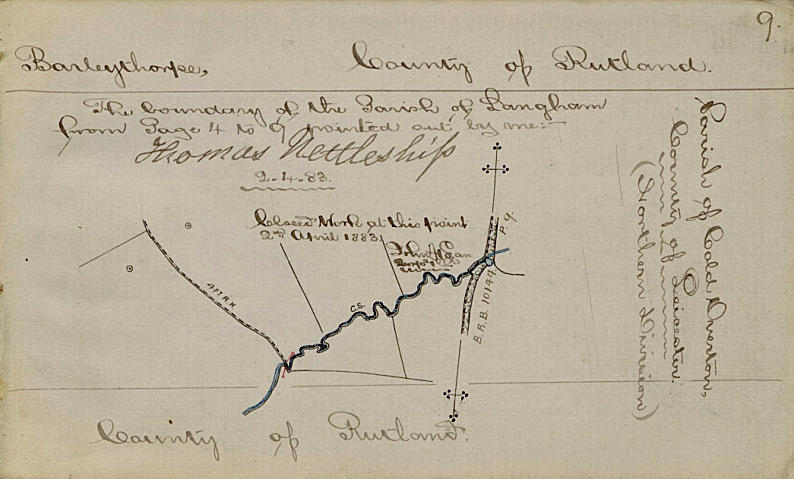 9.
Barleythorpe,
County of Rutland.
The boundary of the Parish of Langham
from Page 4 to 9 pointed out by me:-
Thomas Nettleship
2-4-83.
Closed Work at this point
2nd April 1883
John Egan
4 FT R.H.
C.S.
P. 7.
B.R.B. 10144
Parish of Cold Overton,
County of Leicester.
(Northern Division)
County of Rutland.